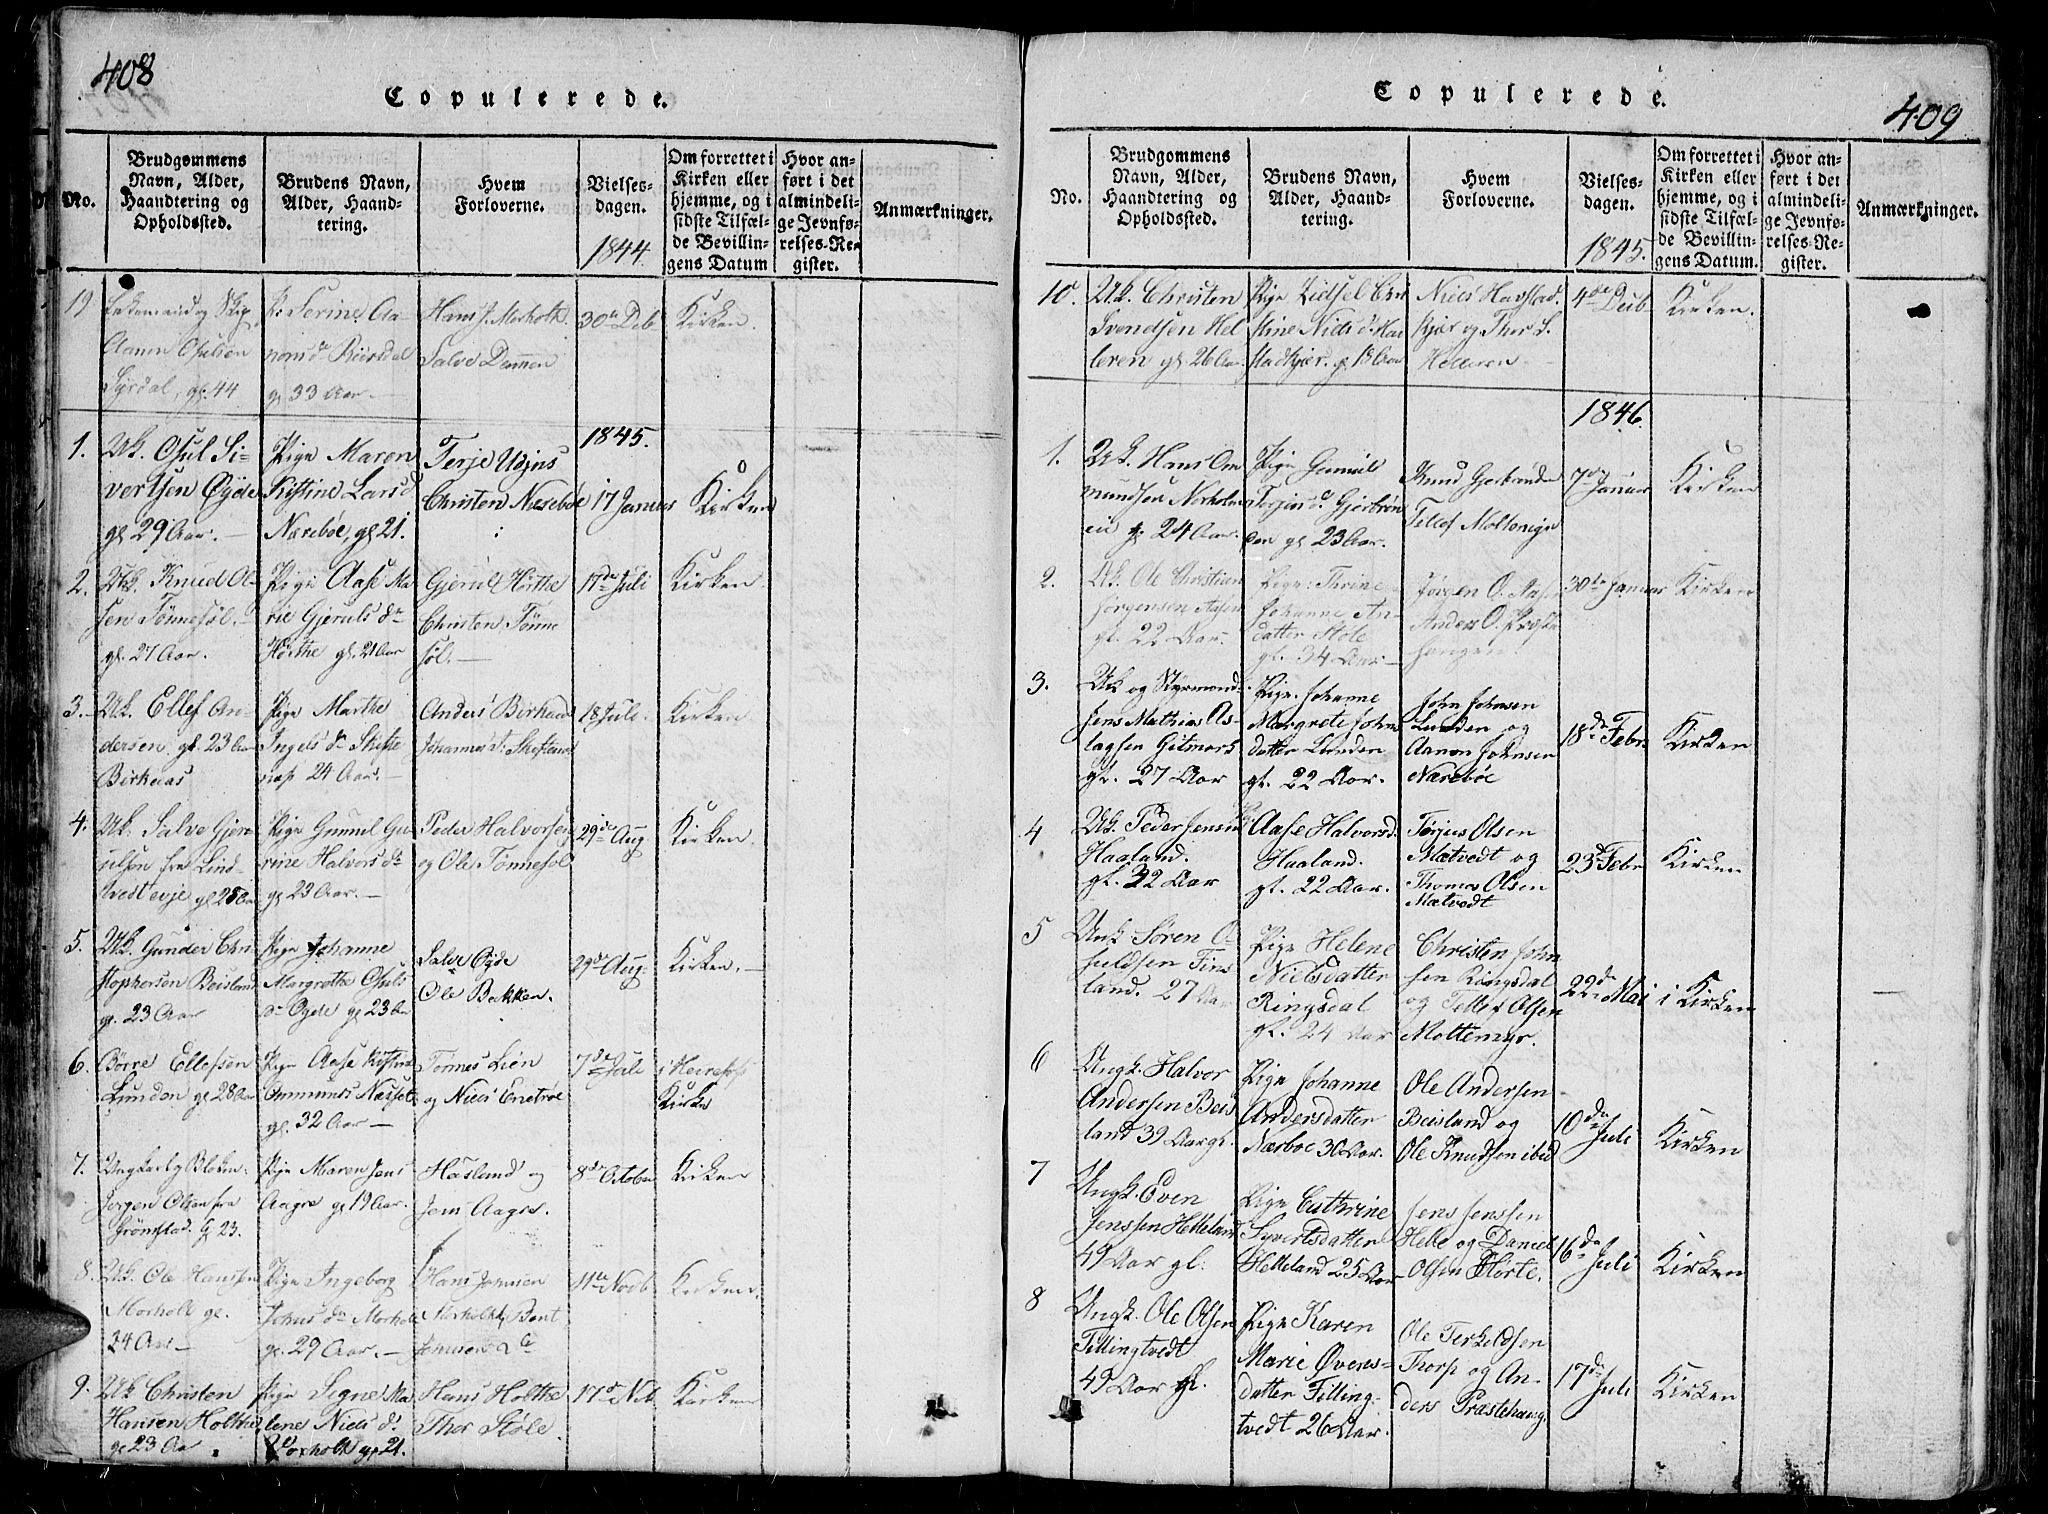 408
Copulerede.
No.
Brudgommens
Navn, Alder,
Haandtering og
Opholdssted.
Brudens Navn,
Alder, Haand-
tering.
Hvem
Forloverne.
Vielses-
dagen.
1844.
Om forrettet i
Kirken eller
hjemme, og i
sidste Tilfæl-
de Bevillin-
gens Datum
Hvor an-
ført i det
almindeli-
ge Jevnfø-
relses-Re-
gister.
Anmærkninger.
19
Enkemand og Skip
Aanon Osulsen
gl. 44
P. Serine Aa-
nons d.
gl 33 Aar.
Hans J. Morholt.
Salve
30te Deb
Kirken.
1845.
1.
Uk. Osul Si-
vertsen Øyde
gl 29 Aar.
Pige Maren
Kistine Lars d
Nærebøe, gl 21.
Terje
Christen Nærebøe
17 Januar
Kirken
2.
Uk. Knud Ol-
sen Tønnesøl.
gl. 27 Aar.
Pige Aase Ma-
rie Gjeruls dr
Hørthe gl. 21 Aar
Gjerul Hørthe
Christen Tønne
søl.
17de Juli
Kirken
3.
Uk. Ellef An-
dersen gl. 23 Aar
Birkenas
Pige Marthe
Ingels dr
24 Aar.
Anders Birkenas
Johannes
18 Juli.
Kirken
4.
Uk. Salve Gjer-
ulsen fra Lind-
tvedt evje gl 25 Aar
Pige Gunuel Gu-
rine Halvors dr
gl 23 Aar.
Peder Halvorsen
og Ole Tønnesøl
29de Aug
Kirken.
5.
Uk. Gunder Chri-
stophersen Beisland
gl. 23 Aar
Pige Johanne
Margrethe Osuls
dr Øyde gl 23 Aar
Salve Øyde
Ole Bakken.
29de Aug.
Kirken.
6.
Børre Ellefsen
Lunden gl 28 Aar
Pige Aase Kistine
gl. 32 Aar
Tønnes Lien
og Niels Enetrøe
7de Juli
i Heirefos
Kirke
7.
Ungkarl
Jørgen Olsen fra
Grömstad. gl 23.
Pige Maren Jens
Aagre gl 19 Aar.
Hasland og
Jens Aagre.
8de October
Kirken
8.
Uk. Ole Hansen
Morholt gl.
24 Aar
Pige Ingeborg
Morholt
gl. 29 Aar.
Hans Jensen
Morholt, Bent
11te Novb
Kirken.
9.
Uk Christen
Hansen Holthe,
gl 23 Aar
Pige Signe Ma
lene Niels d.
gl 21.
Hans Holthe
Thor Støle.
17de Nvb
Kirken
409
Copulerede.
No.
Brudgommens
Navn, Alder,
Haandtering og
Opholdssted.
Brudens Navn,
Alder, Haand-
tering.
Hvem
Forloverne.
Vielses-
dagen.
1845.
Om forrettet i
Kirken eller
hjemme, og i
sidste Tilfæl-
de Bevillin-
gens Datum.
Hvor an-
ført i det
almindeli-
ge Jevnfø-
relses-Re-
gister.
Anmærkninger.
10.
Uk. Christen
Svendsen Hel
leren gl 26 Aar
Pige Lidsel Chri
stine Niels d. Hav
stadkjær. gl 18 Aar
Niels Havstad.
kjær og Thor S.
Helleren
4de Decb.
Kirken.
1846.
1.
Uk. Hans Om
mundsen Norholm
en gl 24 Aar.
Pige Gunuil
Terjus d. Gjerbrøn
den gl 23 Aar.
Knud Gjerbrønden
Tellef Moltemyr
7de Januar
Kirken
2.
Uk. Ole Christian
Jørgensen Aasen
gl. 22 Aar.
Pige: Thrine
Johanne An-
datter Støle
gl. 34 Aar
Jørgen O. Aasen
Anders O. Præste
hangen.
30te Januar
Kirken
3.
Uk og Styrmand
Jens Mathias As-
lagsen Gitmark
gl. 27 Aar
Pige. Johanne
Margrete Johns
datter Lunden
gl. 22 Aar.
John Johnsen
Lunden og
Aanon Johnsen
Nærebøe
18de Febr.
Kirken
4
Uk. Peder Jensen
Haaland.
gl. 32 Aar
Aase Halvorsd.
Haaland.
gl. 22 Aar.
Terjus Olsen
Mætvedt og
Thomas Olsen
Mætvedt
23de Febr
Kirken
5
Unk Søren O-
suldsen Tins
land. 27 Aar
Pige Helene
Nielsdatter
Ringsdal
gl. 24 Aar
Christen John
sen Ringsdal
og Tellef Olsen
Mottemyr.
22de Mai
i Kirken
6
Ungk. Halvor
Andersen Beis
land 39 Aar gl.
Pige Johanne
Andersdatter
Nærboe 30 Aar.
Ole Andersen
Beisland og
Ole Knudsen ibid
10de Juli
Kirken
7
Ungk. Even
Jenssen Hetteland
49 Aar gl.
Pige Cathrine
Syvertsdatter
Hetteland 25 Aar
Jens Jenssen
Helle og Daniel
Olsen Hørte.
16de Juli
Kirken
8
Ungk. Ole Olsen
Tillingtvedt
49 Aar gl.
Pige Karen
Marie Øvens-
datter Tilling-
tvedt 26 Aar.
Ole Terkeldsen
Thorp og An-
ders Præstehang.
17de Juli
Kirken